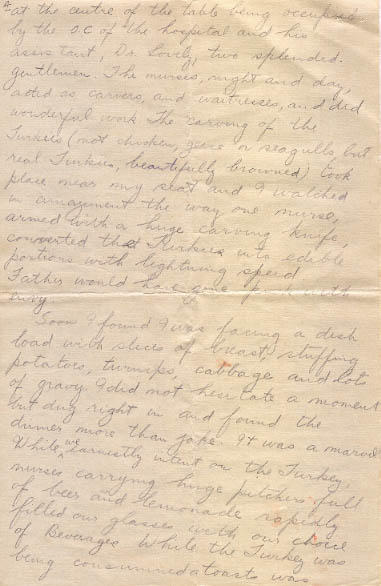 at the centre of the table being occupied
by the O.C of the hospital and his
assistant, Dr. Lovely, two splendid
gentlemen. The nurses, night and day,
acted as carvers, and waitresses, and did
wonderful work The carving of the
Turkies (not chicken, geese or seagulls but
real Turkies, beautifully browned) took
place near my seat and I watched
in amazement the way one nurse,
armed with a huge carving knife,
converted that Turkies into edible
portions with lightning speed
Father would have gone with
envy
Soon I found I was facing a dish
load with slices of breast, stuffing
potatoes, turnips, cabbage and lots
of gravy. I did not hesitate a moment
but dug right in and found the
dinner more than jake. It was a marvel
While we earnestly intent on the Turkey,
nurses carrying huge pitchers full
of beer and lemonade rapidly
filled our glasses with our choice
of Beverages While the Turkey was
being consumed toasts was